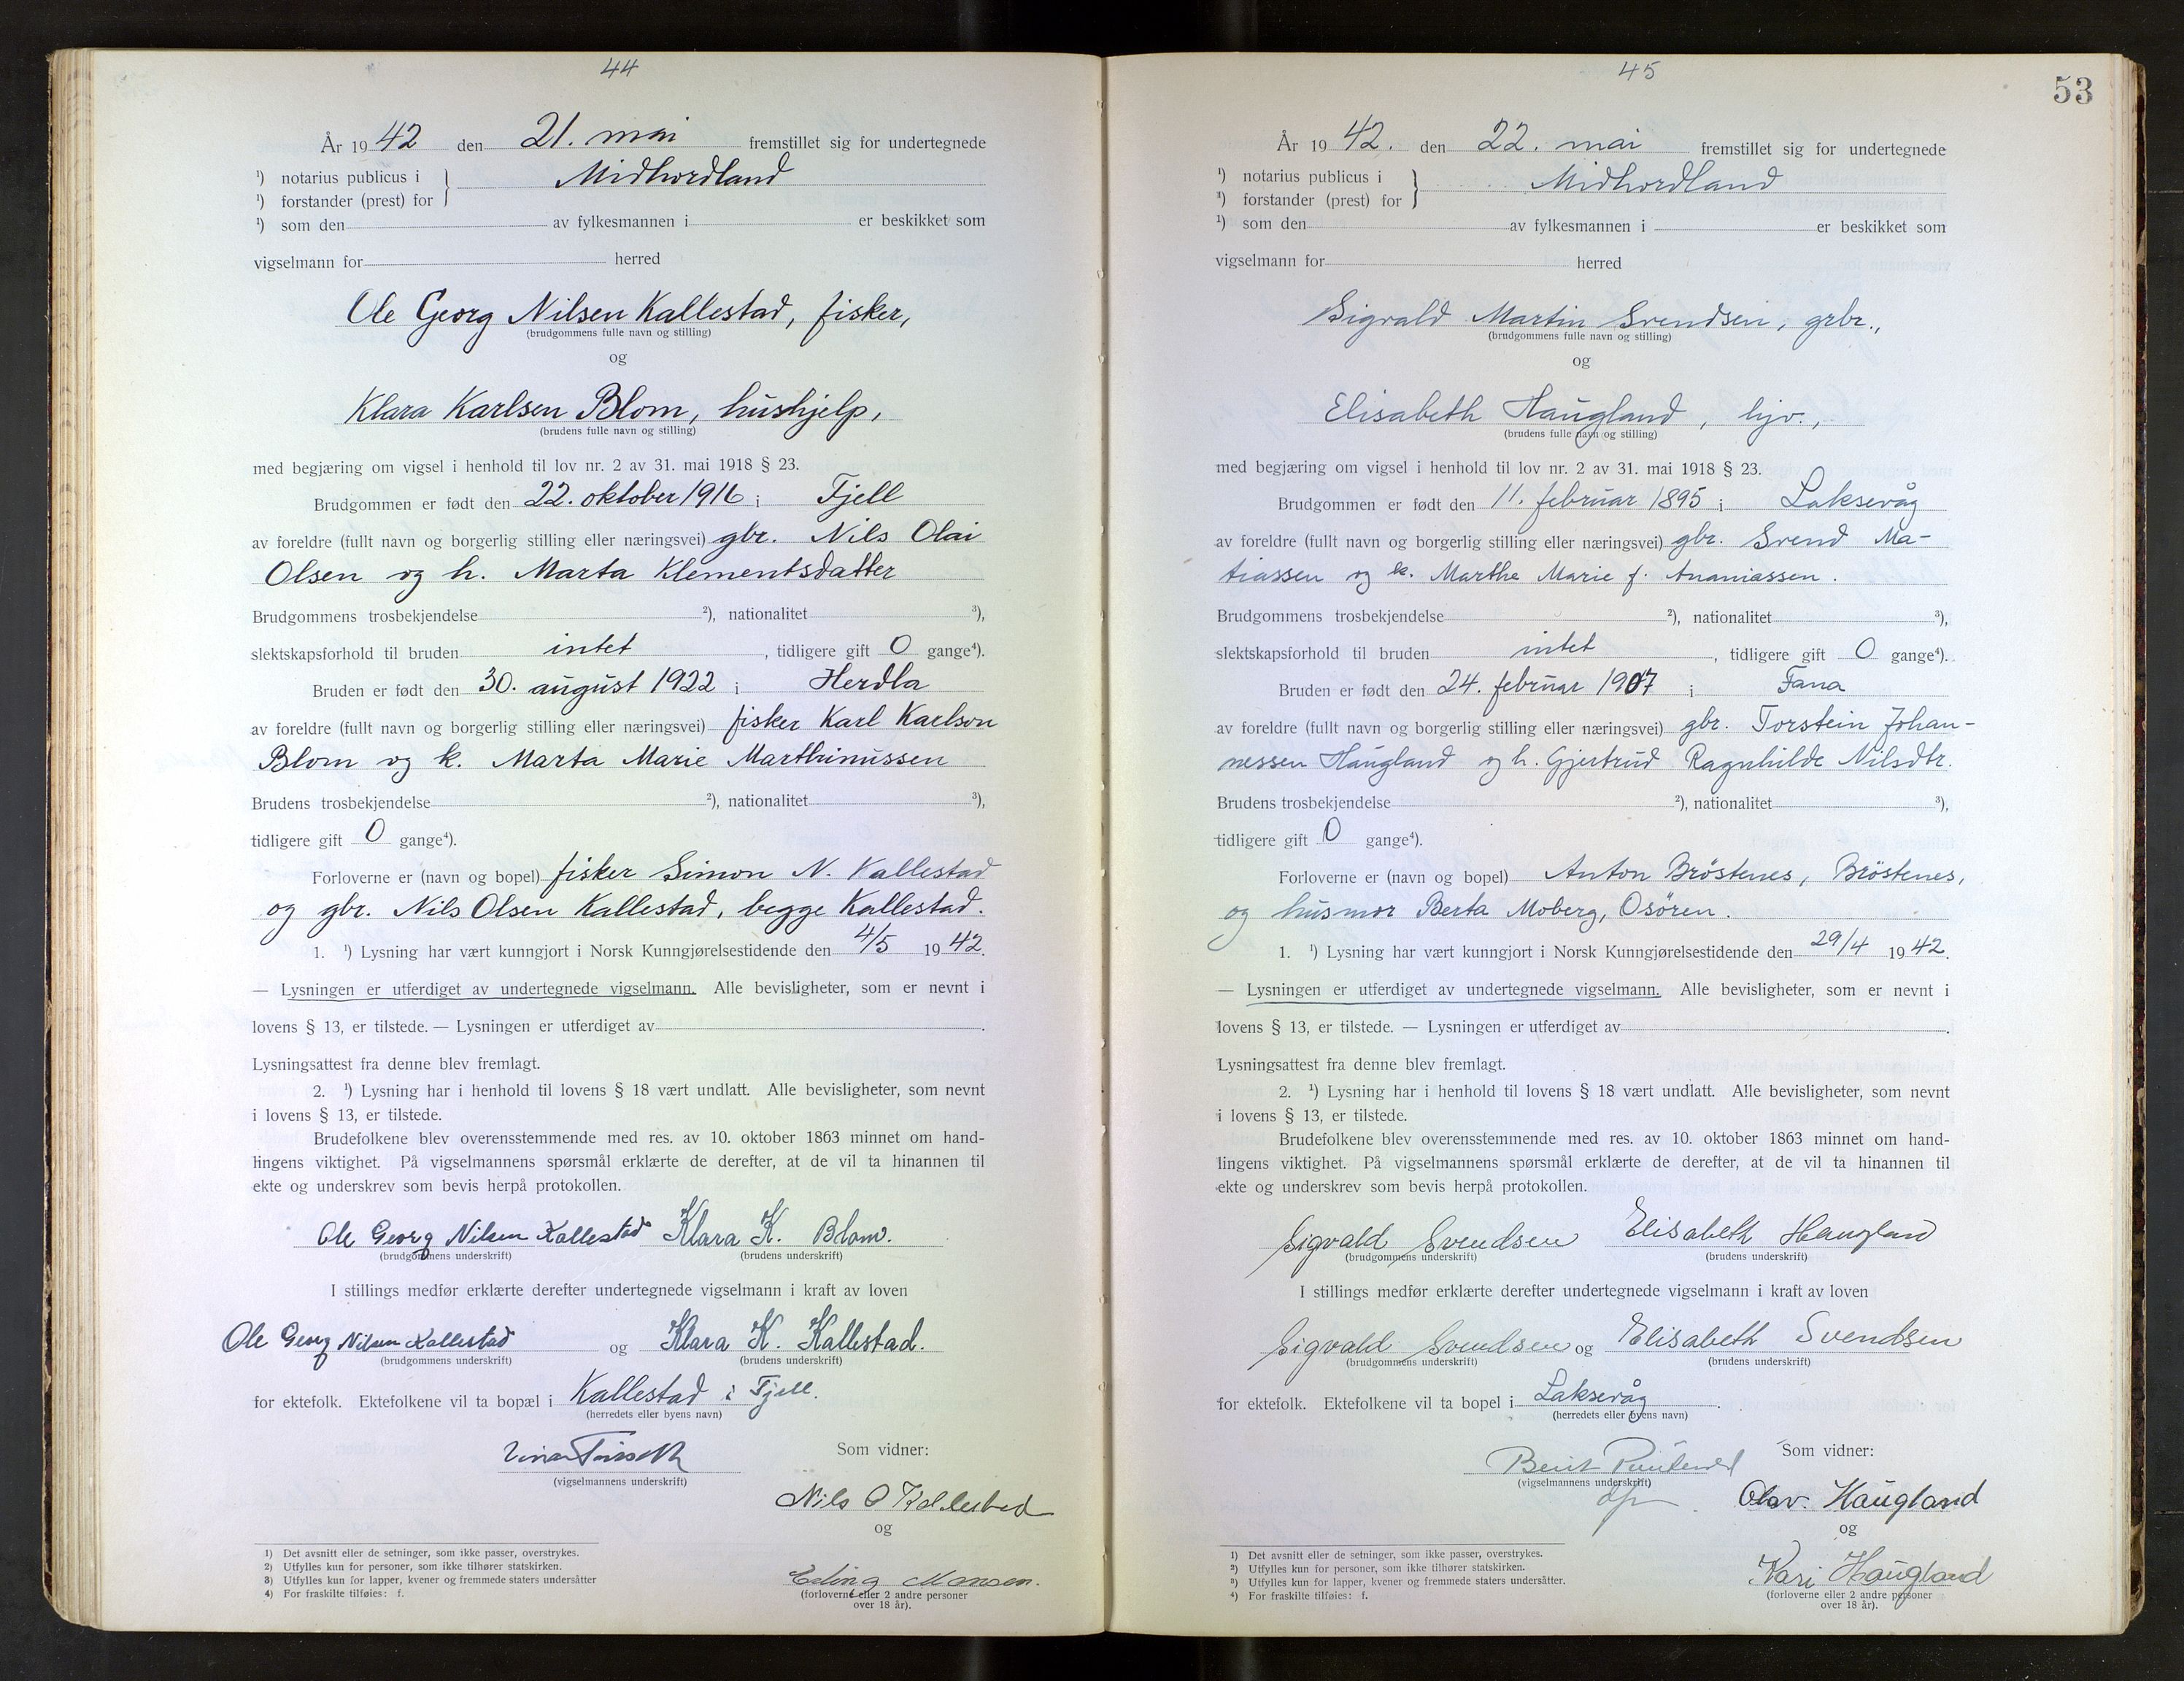 44
År 1942 den 21. mai fremstillet sig for undertegnede
¹) notarius publicus i } Midhordland
¹) forstander (prest) for
¹) som den av fylkesmannen i er beskikket som
vigselmann for herred
Ole Georg Nilsen Kallestad, fisker,
(brudgommens fulle navn og stilling)
og
Klara Karlsen Blom, hushjelp,
(brudens fulle navn og stilling)
med begjæring om vigsel i henhold til lov nr. 2 av 31. mai 1918 § 23.
Brudgommen er født den 22. oktober 1916 i Fjell
av foreldre (fullt navn og borgerlig stilling eller næringsvei) gbr. Nils Olai
Olsen og h. Marta Klementsdatter
Brudgommens trosbekjendelse ²), nationalitet ³),
slektskapsforhold til bruden intet, tidligere gift 0 gange⁴).
Bruden er født den 30. august 1922 i Herdla
av foreldre (fullt navn og borgerlig stilling eller næringsvei) fisker Karl Karlson
Blom og k. Marta Marie Marthinussen
Brudens trosbekjendelse ²), nationalitet ³),
tidligere gift 0 gange⁴).
Forloverne er (navn og bopel) fisker Simon N. Kallestad
og gbr. Nils Olsen Kallestad, begge Kallestad.
1. ¹) Lysning har vært kunngjort i Norsk Kunngjørelsestidende den 4/5 1942.
— Lysningen er utferdiget av undertegnede vigselmann. Alle bevisligheter, som er nevnt i
lovens § 13, er tilstede. — Lysningen er utferdiget av .
Lysningsattest fra denne blev fremlagt.
2. ¹) Lysning har i henhold til lovens § 18 vært undlatt. Alle bevisligheter, som nevnt
i lovens § 13, er tilstede.
Brudefolkene blev overensstemmende med res. av 10. oktober 1863 minnet om hand-
lingens viktighet. På vigselmannens spørsmål erklærte de derefter, at de vil ta hinannen til
ekte og underskrev som bevis herpå protokollen.
Ole Georg Nilsen Kallestad Klara K. Blom.
(brudgommens underskrift) (brudens underskrift)
I stillings medfør erklærte derefter undertegnede vigselmann i kraft av loven
Ole Georg Nilsen Kallestad og Klara K. Kallestad.
(brudgommens underskrift) (brudens underskrift)
for ektefolk. Ektefolkene vil ta bopæl i Kallestad i Fjell.
(herredets eller byens navn)
Som vidner:
(vigselmannens underskrift)
Nils O Kallestad
og
Erling Monsen.
(forloverne eller 2 andre personer
over 18 år).
1) Det avsnitt eller de setninger, som ikke passer, overstrykes.
2) Utfylles kun for personer, som ikke tilhører statskirken.
3) Utfylles kun for lapper, kvener og fremmede staters undersåtter
4) For fraskilte tilføies: f.
45
53
År 1942. den 22. mai fremstillet sig for undertegnede
¹) notarius publicus i } Midhordland
¹) forstander (prest) for
¹) som den av fylkesmannen i er beskikket som
vigselmann for herred
Sigvald Martin Svendsen, grbr.,
(brudgommens fulle navn og stilling)
og
Elisabeth Haugland, hjv.,
(brudens fulle navn og stilling)
med begjæring om vigsel i henhold til lov nr. 2 av 31. mai 1918 § 23.
Brudgommen er født den 11. februar 1895 i Laksevåg
av foreldre (fullt navn og borgerlig stilling eller næringsvei) gbr. Svend Ma-
tiassen og k. Marthe Marie f. Ananiassen.
Brudgommens trosbekjendelse ²), nationalitet ³),
slektskapsforhold til bruden intet, tidligere gift 0 gange⁴).
Bruden er født den 24. februar 1907 i Fana
av foreldre (fullt navn og borgerlig stilling eller næringsvei) gbr. Torstein Johan-
nessen Haugland og h. Gjertrud Ragnhilde Nilsdtr.
Brudens trosbekjendelse ²), nationalitet ³),
tidligere gift 0 gange⁴).
Forloverne er (navn og bopel) Anton Bröstenes, Bröstenes,
og husmor Berta Moberg, Osören.
1. ¹) Lysning har vært kunngjort i Norsk Kunngjørelsestidende den 29/4 1942.
— Lysningen er utferdiget av undertegnede vigselmann. Alle bevisligheter, som er nevnt i
lovens § 13, er tilstede. — Lysningen er utferdiget av .
Lysningsattest fra denne blev fremlagt.
2. ¹) Lysning har i henhold til lovens § 18 vært undlatt. Alle bevisligheter, som nevnt
i lovens § 13, er tilstede.
Brudefolkene blev overensstemmende med res. av 10. oktober 1863 minnet om hand-
lingens viktighet. På vigselmannens spørsmål erklærte de derefter, at de vil ta hinannen til
ekte og underskrev som bevis herpå protokollen.
Sigvald Svendsen Elisabeth Haugland
(brudgommens underskrift) (brudens underskrift)
I stillings medfør erklærte derefter undertegnede vigselmann i kraft av loven
Sigvald Svendsen og Elisabeth Svendsen
(brudgommens underskrift) (brudens underskrift)
for ektefolk. Ektefolkene vil ta bopel i Laksevåg.
(herredets eller byens navn)
Berit Som vidner:
(vigselmannens underskrift)
Olav Haugland
og
Kari Haugland
(forloverne eller 2 andre personer
over 18 år).
1) Det avsnitt eller de setninger, som ikke passer, overstrykes.
2) Utfylles kun for personer, som ikke tilhører statskirken.
3) Utfylles kun for lapper, kvener og fremmede staters undersåtter.
4) For fraskilte tilføies: f.